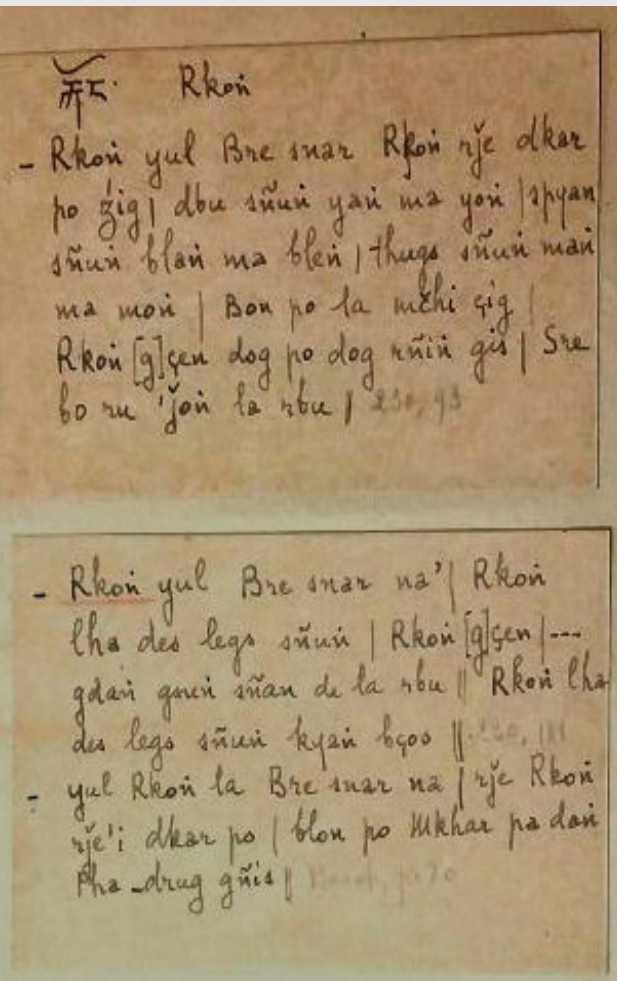 རྐོང་ Rkoṅ
- Rkoṅ yul Bre snar Rkoṅ rǰe dkar
po źig | dbu sñuṅ yaṅ ma yoṅ | spyan
sñuṅ blaṅ ma bleṅ | thugs sñuṅ maṅ
ma moṅ | Bon po la mčhi çig |
Rkoṅ [g]çen dog po dog rñiṅ gis | Sre
bo ru 'ǰoṅ la rbu | 230, 93
- Rkoṅ yul Bre snar na' | Rkoṅ
lha des legs sñuṅ | Rkoṅ [g]çen | ---
gdaṅ gsuṅ sñan de la rbu || Rkoṅ lha
des legs sñuṅ kyaṅ bços ||
- yul Rkoṅ la Bre snar na | rǰe Rkoṅ
rǰe'i dkar po | blon po Mkhar pa daṅ
Pha_drug gñis ||